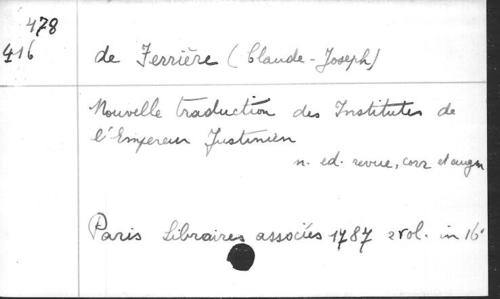 478
416
de Ferrière (Claude-Joseph)
Nouvelle traduction des Institutes de
l'Empereur Justinien
n. ed. revue, corr et augm
Paris Libraires associés 1787 2 vol. in 16°